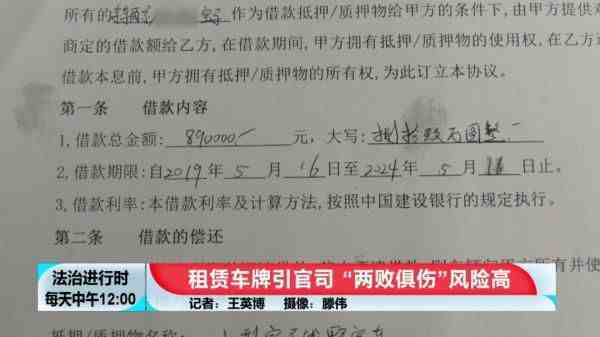 所有的 作为借款抵押/质押物给甲方的条件下,由甲方提供
商定的借款额给乙方,在借款期间,甲方拥有抵押/质押物的使用权,在乙方
借款本息前,甲方拥有抵押/质押物的所有权,为此订立本协议。
第一条 借款内容
1,借款总金额: 890000/ 元,大写: 捌拾玖万圆整
2,借款期限:自2019年5月16日至2024年5月 日止。
3,借款利率:本借款利率及计算方法,按照中国建设银行的规定执行。
第二条 借款的偿还
法治进行时
每天中午12:00
租赁车牌引官司 “两败俱伤”风险高
记者: 王英博 摄像: 滕伟
抵押/质押物名称: